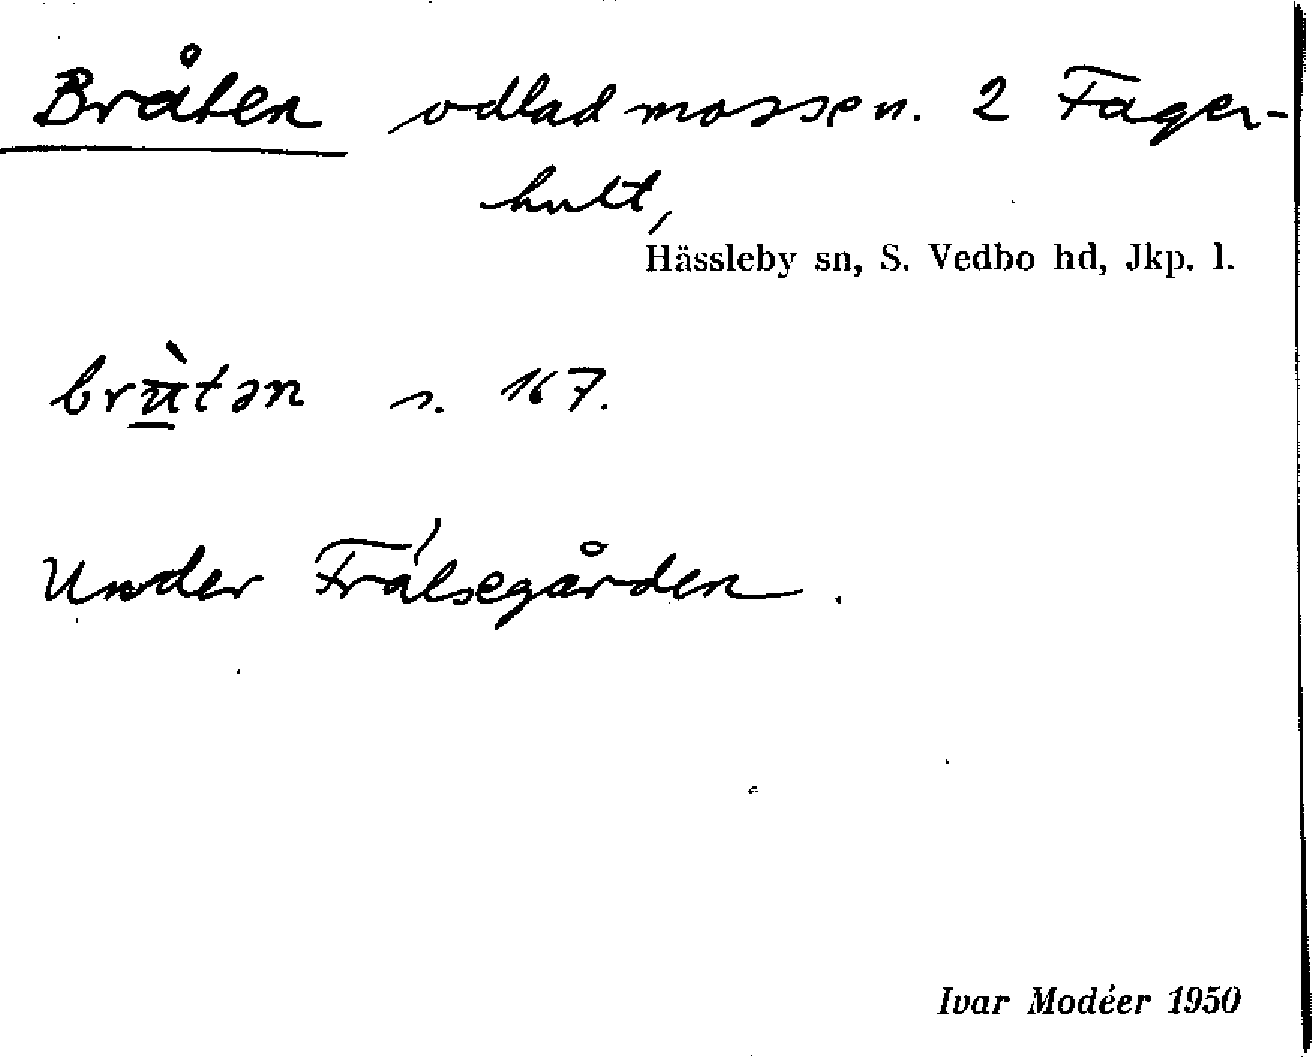 Bråten odlad mossen. 2 Fager-
hult,
Hässleby sn, S. Vedbo hd, Jkp. l.
brùtən s. 167.
Under Frälsegården.
Ivar Modéer 1950